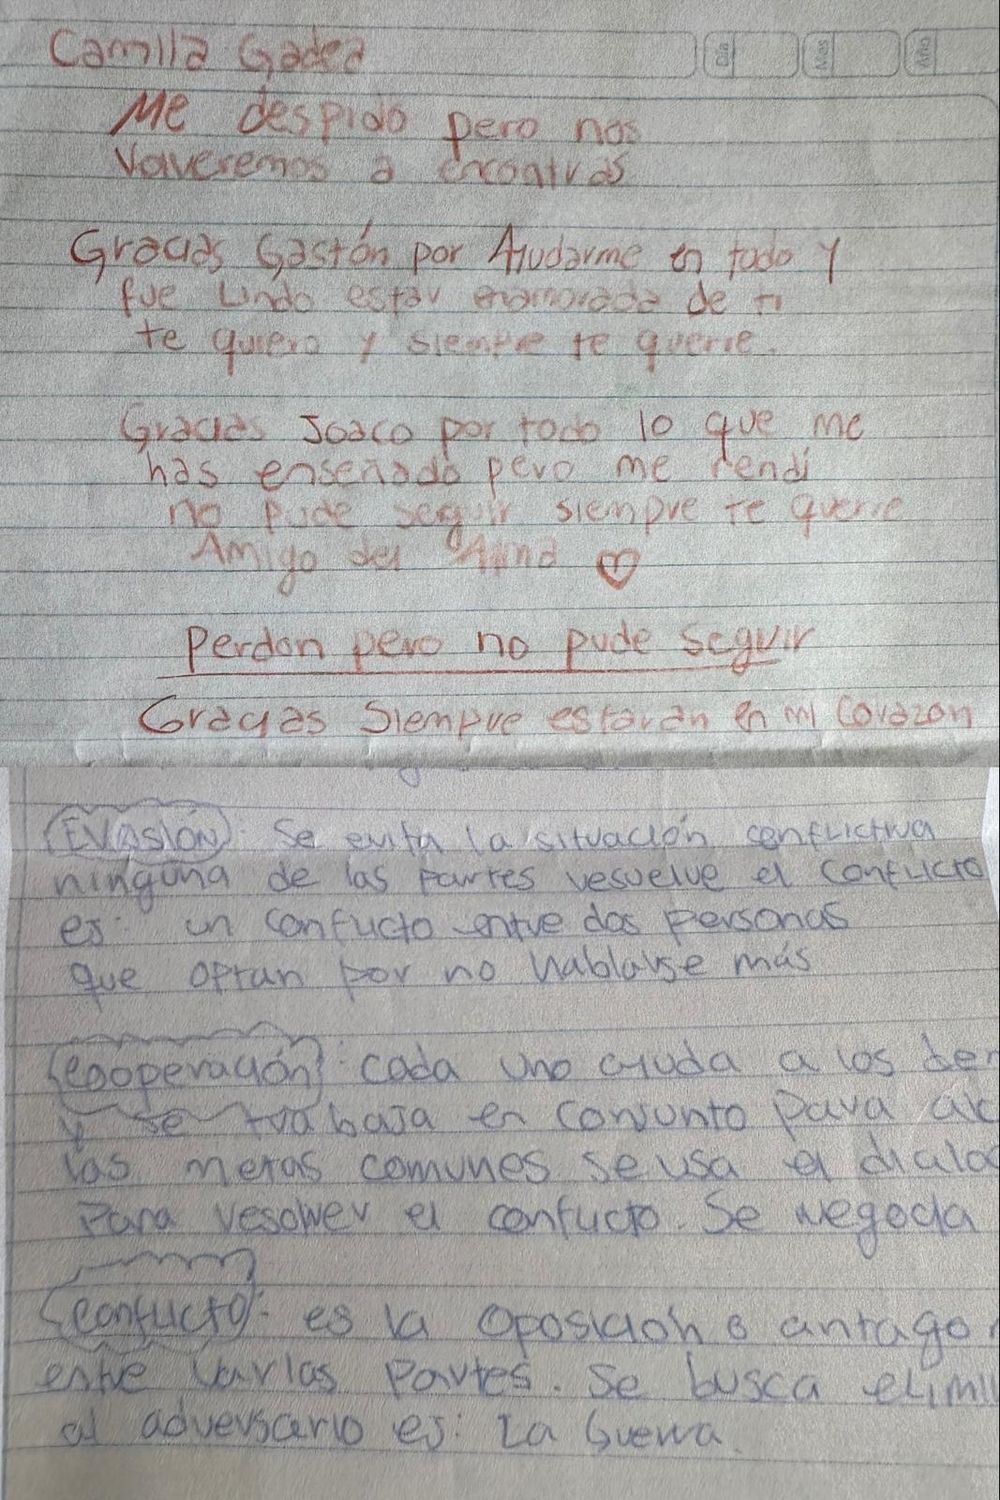 Camila Gadea
Día Mes Año
Me despido pero nos
Volveremos a encontras
Gracias Gastón por Ayudarme en todo y
fue Lindo estar enamorada de ti
te quiero y siempre te querre.
Gracias Joaco por todo lo que me
has enseñado pero me rendi
no pude seguir siempre te querre
Amigo del Alma
Perdon pero no pude seguir
Gracias Siempre estaran en mi Corazon
Evasión: Se evita la situación conflictiva
ninguna de las partes resuelve el conflicto
ej: un conflicto entre dos personas
que optan por no hablarse más
Cooperación: cada uno ayuda a los dem
y se trabaja en conjunto para alc
las metas comunes se usa el dialog
Para resolver el conflicto. Se negocia
Conflicto: es la oposición o antagon
entre varias partes. Se busca elimi
al adversario ej: La Guerra.